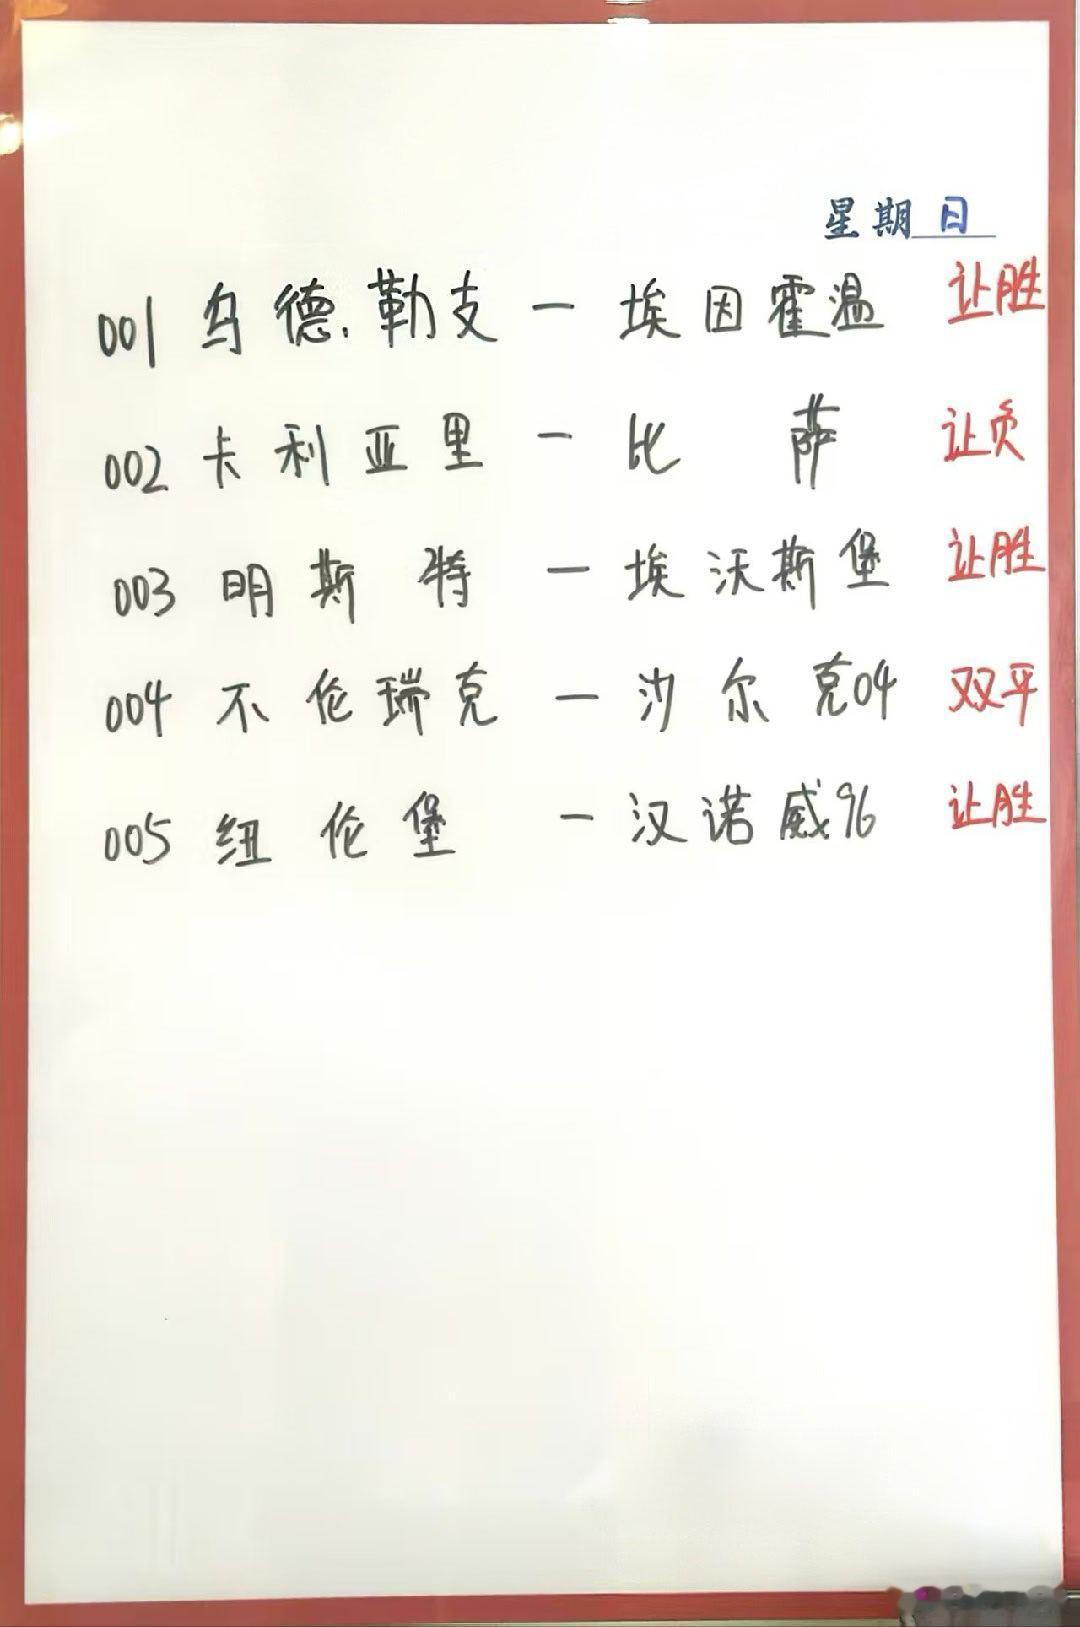 星期日
001 乌德勒支 - 埃因霍温 让胜
002 卡利亚里 - 比萨 让负
003 明斯特 - 埃沃斯堡 让胜
004 不伦瑞克 - 沙尔克04 双平
005 纽伦堡 - 汉诺威96 让胜